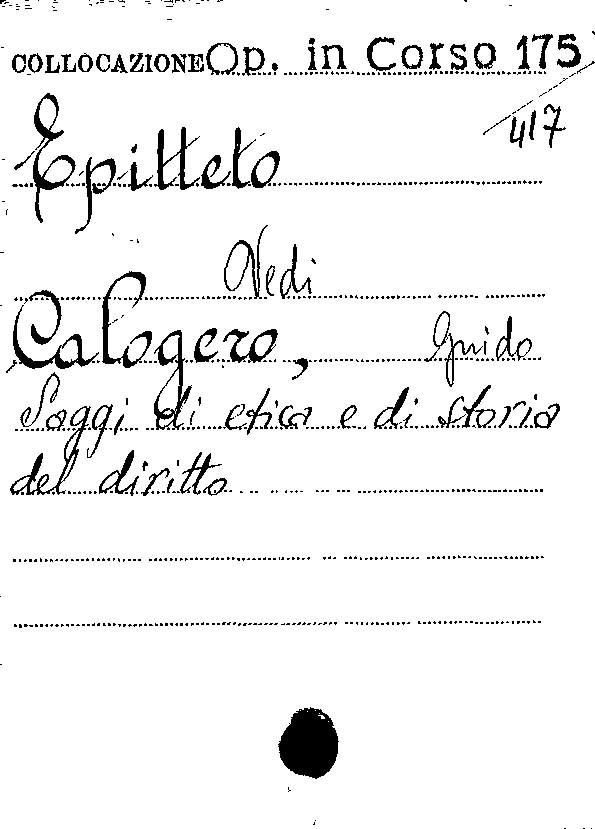 COLLOCAZIONE Op. in Corso 175
417
Epitteto
Vedi
Calogero, Guido
Saggi di etica e di storia
del diritto